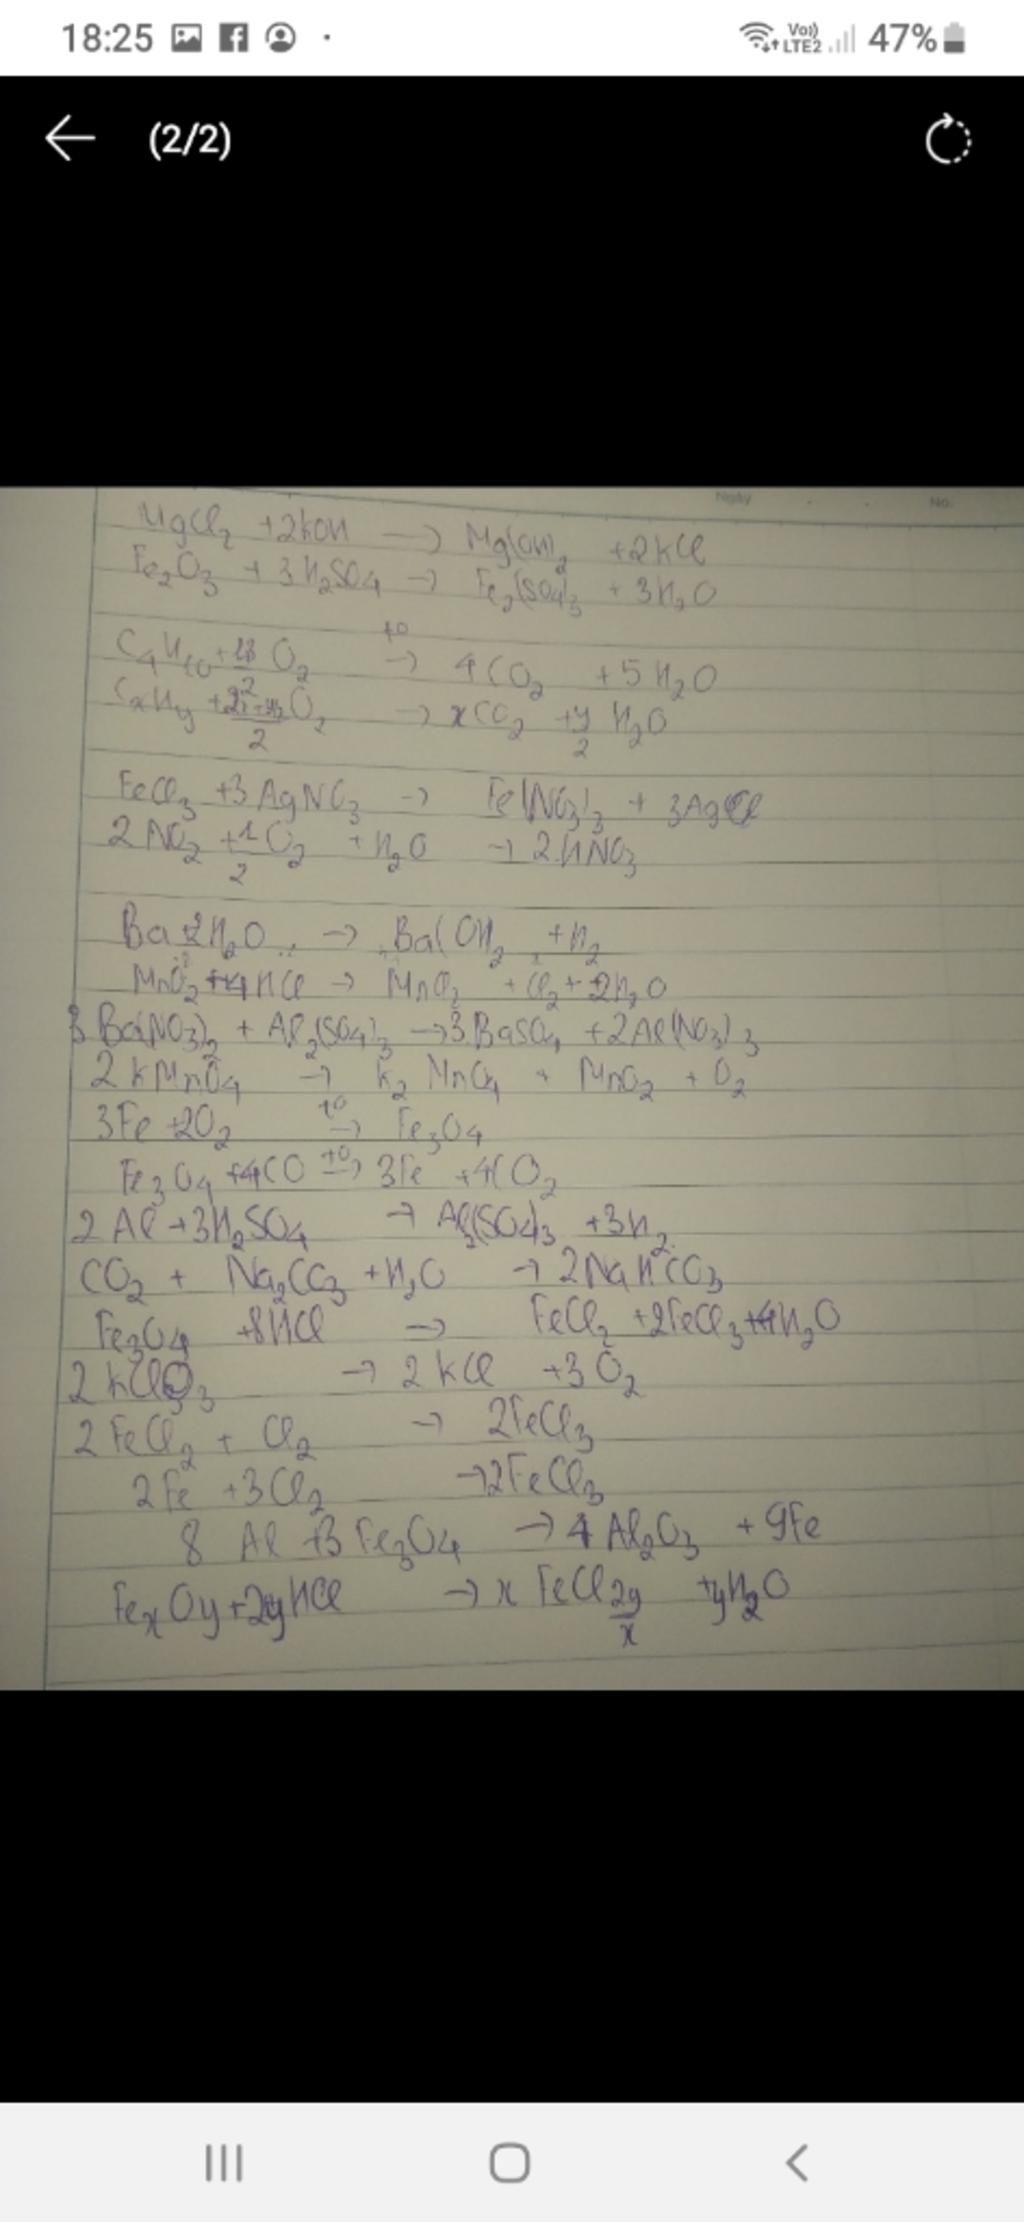 18:25 Vo)) LTE2 47%
(2/2)
Ngày No.
MgCl₂ + 2KOH → Mg(OH)₂ + 2KCl
Fe₂O₃ + 3H₂SO₄ → Fe₂(SO₄)₃ + 3H₂O
C₄H₁₀ + 13/2 O₂ t° → 4CO₂ + 5H₂O
CxHy + O₂ → xCO₂ + y/2 H₂O
FeCl₃ + 3AgNO₃ → Fe(NO₃)₃ + 3AgCl
2NO₂ + 1/2 O₂ + H₂O → 2HNO₃
Ba + 2H₂O → Ba(OH)₂ + H₂
MnO₂ + 4HCl → + Cl₂ + 2H₂O
3Ba(NO₃)₂ + Al₂(SO₄)₃ → 3BaSO₄ + 2Al(NO₃)₃
2KMnO₄ → K₂MnO₄ + MnO₂ + O₂
3Fe + 2O₂ t° → Fe₃O₄
Fe₃O₄ + 4CO t° → 3Fe + 4CO₂
2Al + 3H₂SO₄ → Al₂(SO₄)₃ + 3H₂
CO₂ + Na₂CO₃ + H₂O → 2NaHCO₃
Fe₃O₄ + 8HCl → FeCl₂ + 2FeCl₃ + 4H₂O
2KClO₃ → 2KCl + 3O₂
2FeCl₂ + Cl₂ → 2FeCl₃
2Fe + 3Cl₂ → 2FeCl₃
8Al + 3Fe₃O₄ → 4Al₂O₃ + 9Fe
FexOy + 2yHCl → xFeCl2y/x + yH₂O